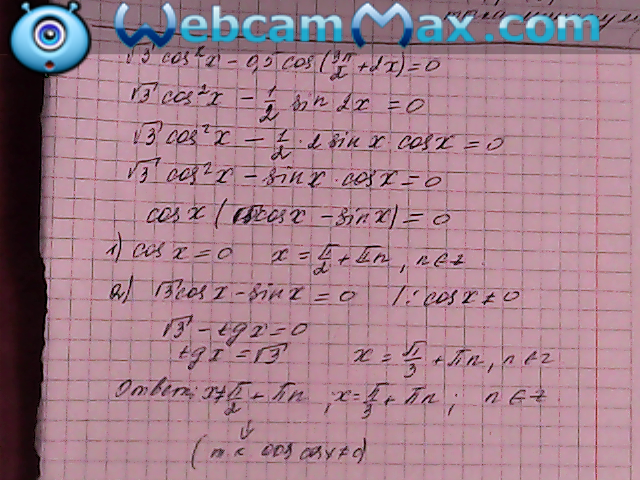 WebcamMax.com
√3 cos²x - 0,5 cos(3π/2 + 2x) = 0
√3 cos²x - 1/2 sin 2x = 0
√3 cos²x - 1/2 · 2 sin x cos x = 0
√3 cos²x - sin x · cos x = 0
cos x (√3 cos x - sin x) = 0
1) cos x = 0 x = π/2 + πn, n ∈ z
2) √3 cos x - sin x = 0 /: cos x ≠ 0
√3 - tg x = 0
tg x = √3 x = π/3 + πn, n ∈ z
Ответ: x ≠ π/2 + πn ; x = π/3 + πn ; n ∈ z
↓
(т.к cos x ≠ 0)